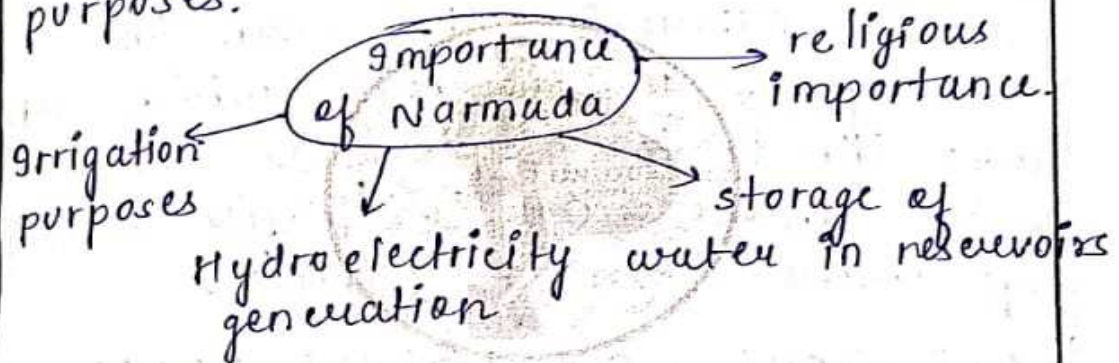 purposes.
Importance
of Narmada
religious
importance.
Irrigation
purposes
Hydroelectricity
generation
storage of
water in reservoirs